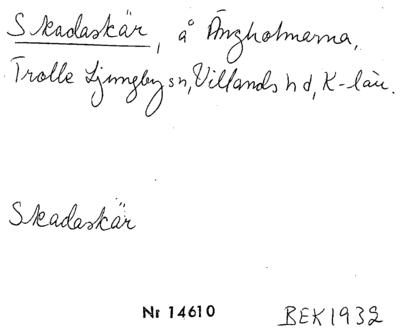 Skadaskär, å Ängholmarna,
Trolle Ljungby sn, Villands hd, K-län.
Skadaskär
Nr 14610 BEK 1932